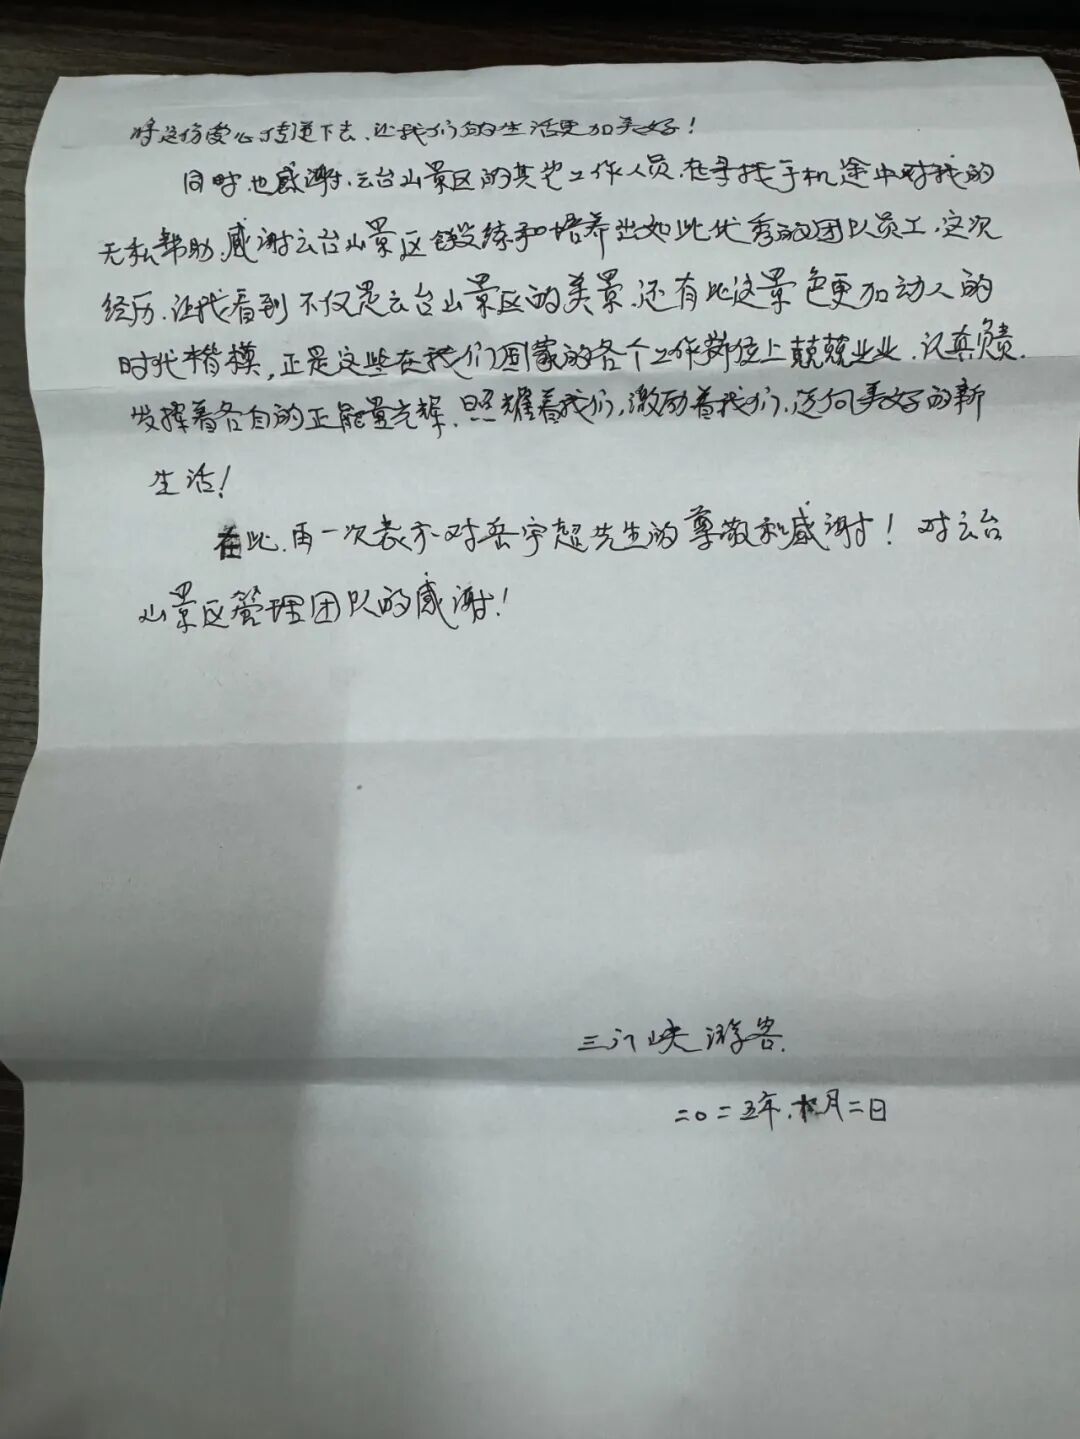 将这份爱心传递下去、让我们的生活更加美好！
同时也感谢、云台山景区的其它工作人员、在寻找手机途中对我的
无私帮助、感谢云台山景区锻练和培养出如此优秀的团队员工、这次
经历、让我看到不仅是云台山景区的美景、还有比这景色更加动人的
时代楷模，正是这些在我们国家的各个工作岗位上兢兢业业、认真负责、
发挥着各自的正能量光辉、照耀着我们，激励着我们、迈向美好的新
生活！
在此、再一次表示对岳宇超先生的尊敬和感谢！对云台
山景区管理团队的感谢！
三门峡游客.
二〇二五年、月二日